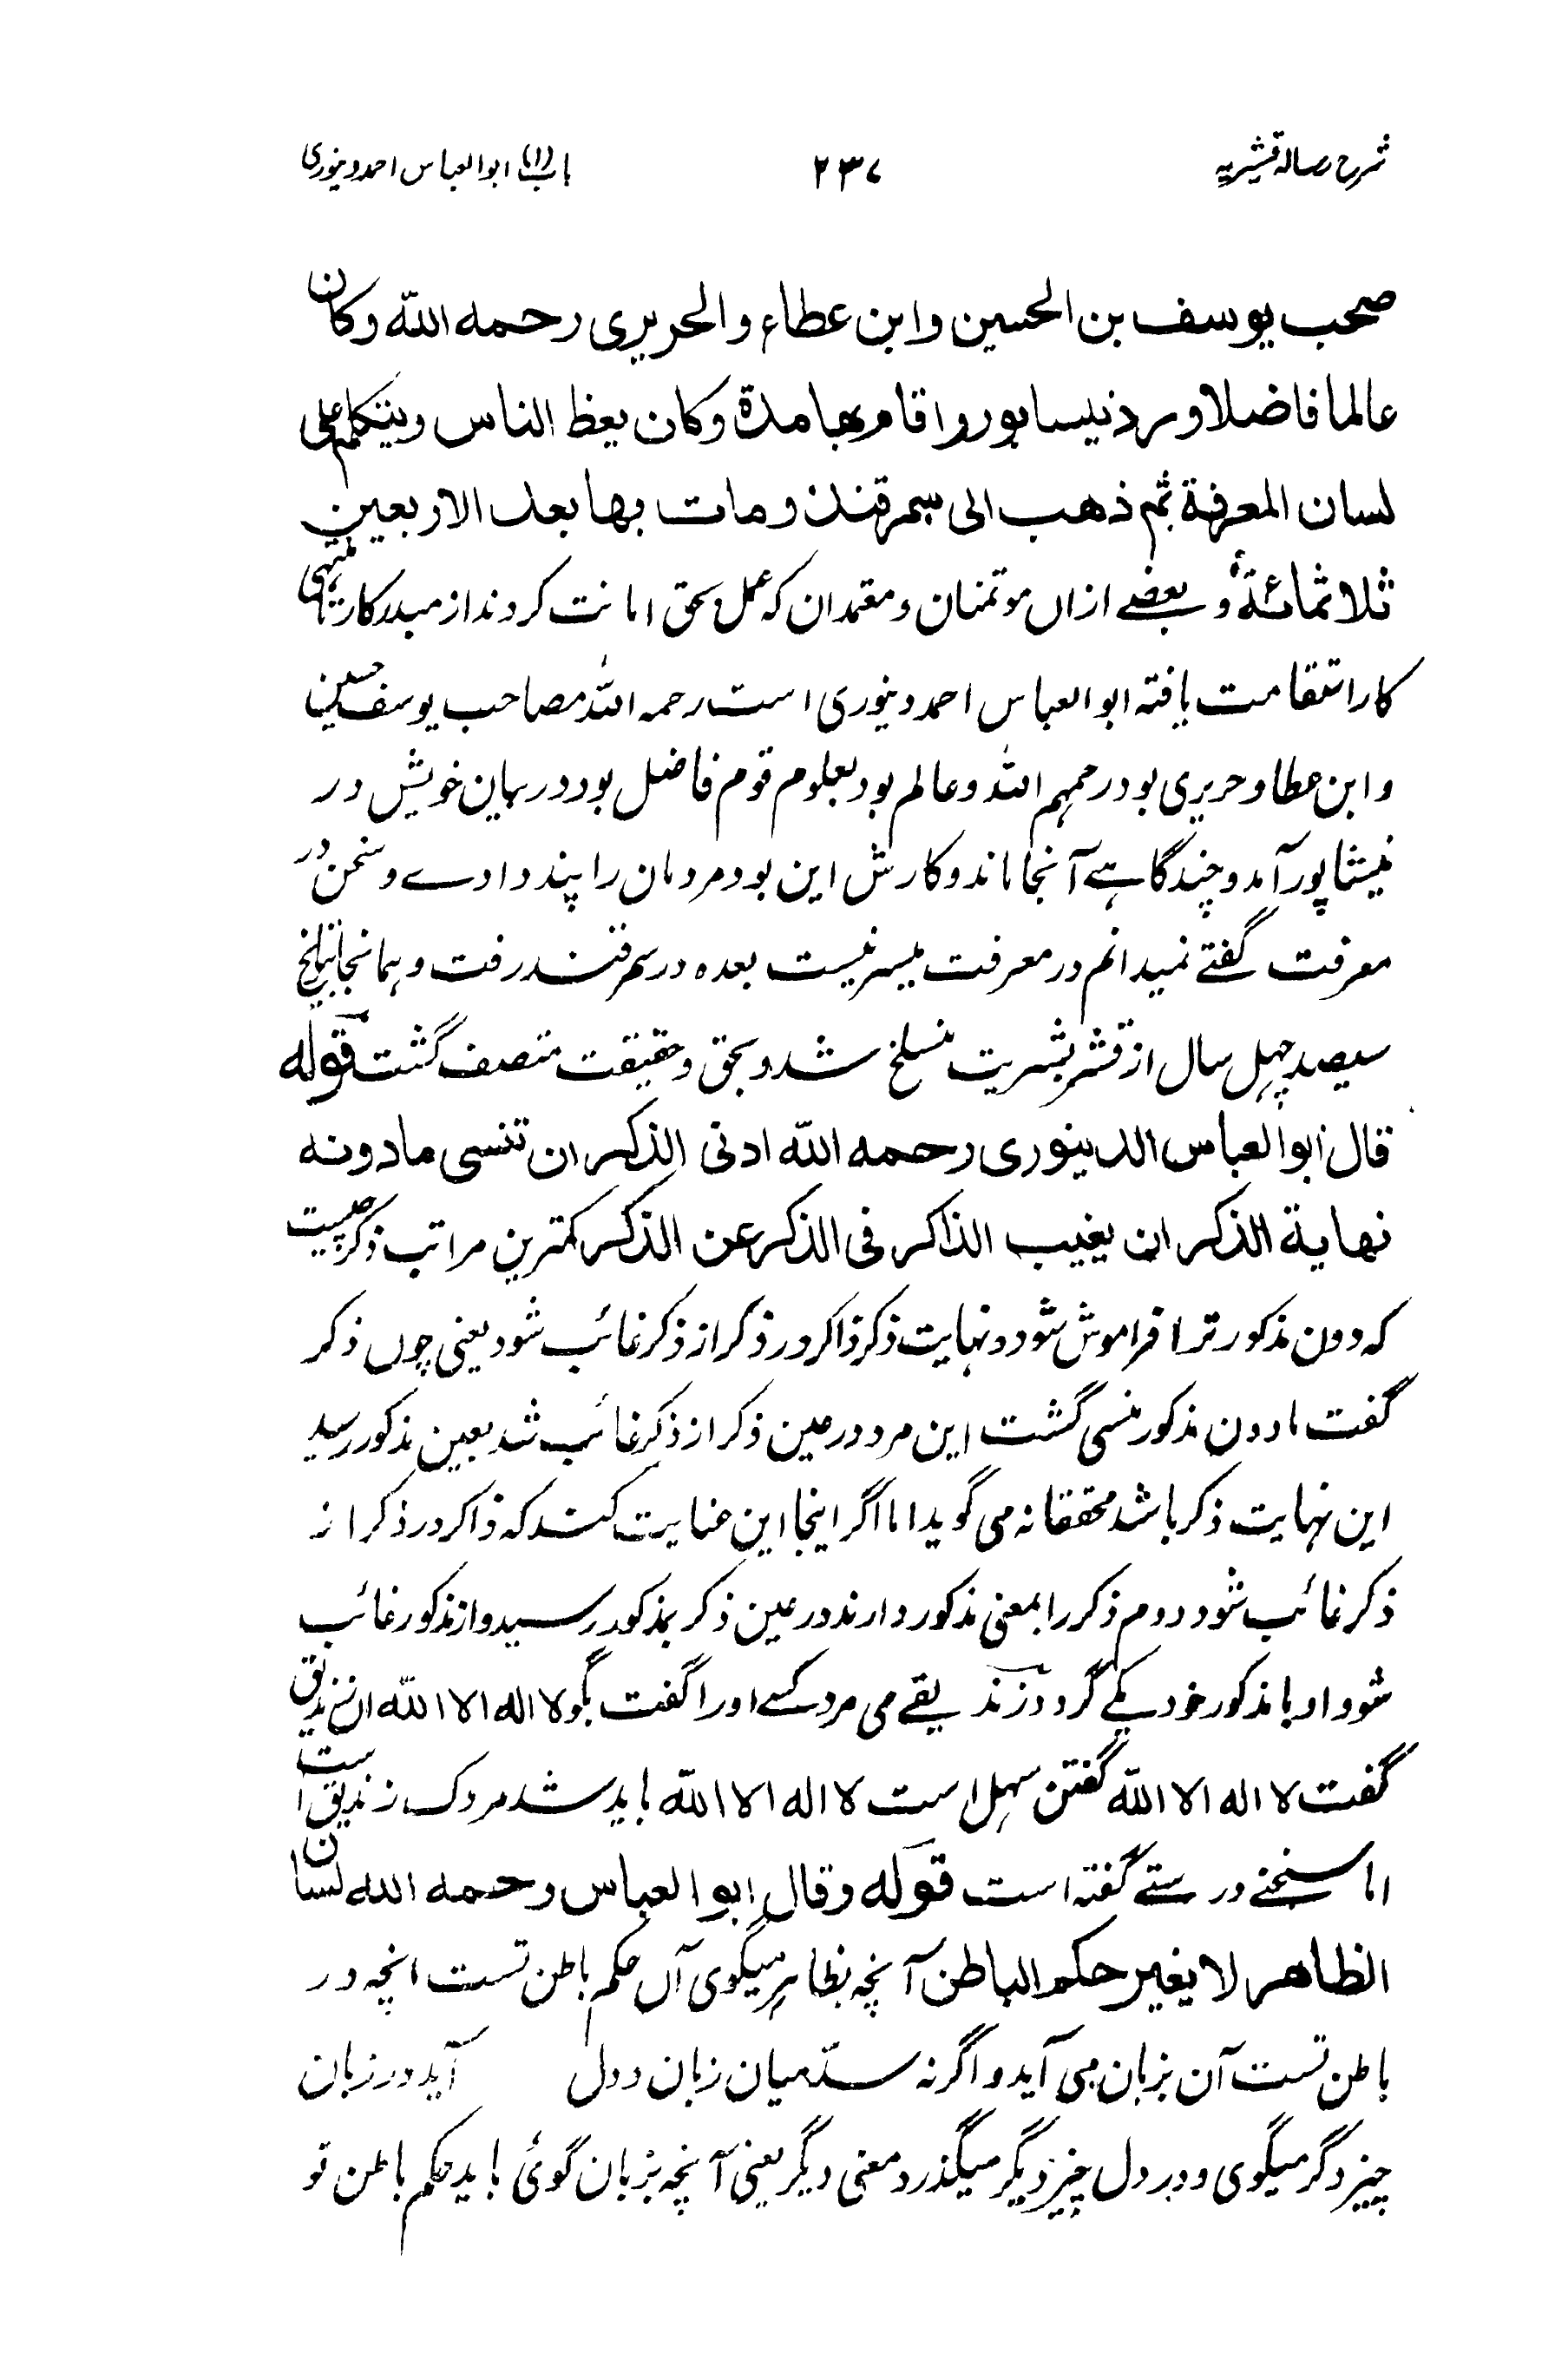 شرح رسالہ قشیریہ ۲۳۷ باب (۱) ابوالعباس احمد دینوری
صحب یوسف بن الحسین وابن عطاء والحریری رحمه الله وکان
عالما فاضلا ورد نیسابور واقام بها مدة وکان یعظ الناس ویتکلم علی
لسان المعرفة ثم ذهب الی سمرقند ومات بها بعد الاربعین
ثلاثمائة و بعضے ازاں موتمنان و معتمدان کہ عمل بحق امانت کردند از مبدا کار تا منتہی
کار استقامت یافتہ ابوالعباس احمد دینوری است رحمہ اللہ مصاحب یوسف حسین
و ابن عطا و حریری بود رحمہم اللہ و عالم بود بعلوم قوم فاضل بود در بیان خویش در
نیشاپور آمد و چند گاہے آنجا ماند و کارش این بود مردمان را پند دادے و سخن در
معرفت گفتے نمیدانم در معرفت میسر نیست بعدہ در سمرقند رفت و ہمانجا بتاریخ
سیصد چہل سال از قشر بشریت منسلخ شد و بحق و حقیقت متصف گشت قوله
قال ابوالعباس الدینوری رحمه الله ادنی الذکر ان تنسی مادونه
نهایة الذکر ان یغیب الذاکر فی الذکر عن الذکر کمترین مراتب ذکر چیست
کہ دون مذکور ترا فراموش شود و نہایت ذکر ذاکر در ذکر از ذکر غائب شود یعنی چوں ذکر
گفت مادون مذکور منسی گشت این مرد در عین ذکر از ذکر غائب شد بعین مذکور رسید
این نہایت ذکر باشد محققانہ می گوید اما اگر اینجا این عنایت کنند کہ ذاکر در ذکر از
ذکر غائب شود دوم ذکر را بمعنی مذکور دارند در عین ذکر بمذکور رسید و از مذکور غائب
شود او با مذکور خود یکے گردد زندیقے می مرد کسے اورا گفت بگو لا اله الا الله ان زندیق
گفت لا اله الا الله گفتن سہل است لا اله الا الله باید شد مردک زندیق است
اما سخنے درستے گفتہ است قوله وقال ابوالعباس رحمه الله لسان
الظاهر لا یغیر حکم الباطن آنچہ بظاہر میگوی آں حکم باطن تست انچہ در
باطن تست آن بزبان می آید و اگر نہ سد میان زبان و دل آید در زبان
چیز دگر میگوی و در دل چیز دیگر میگذرد معنی دیگر یعنی آنچہ بزبان گوئی باید حکم باطن تو